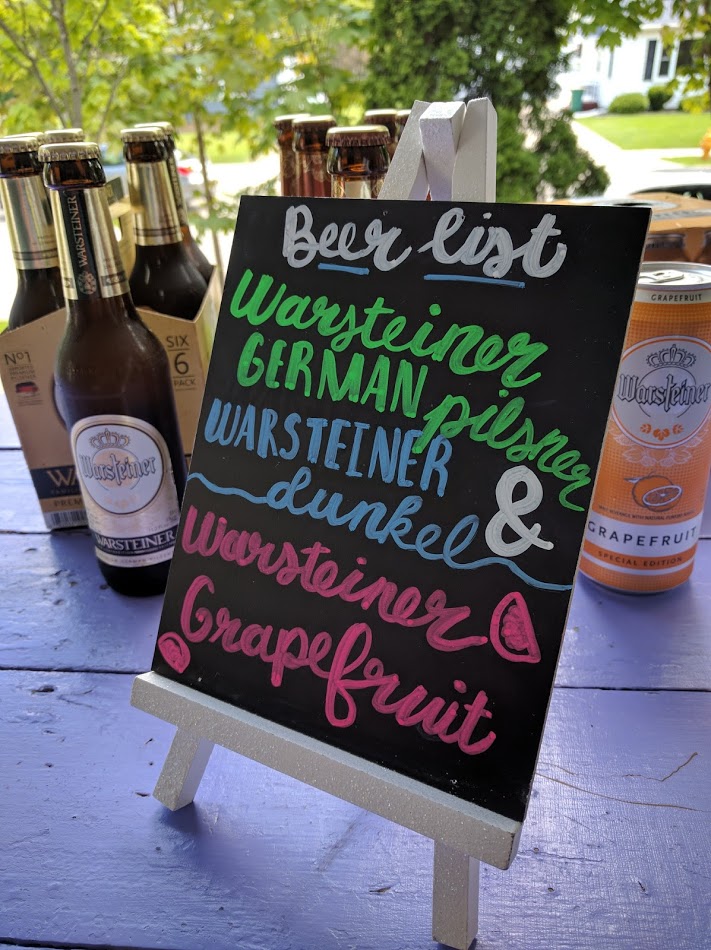 Beer list
Warsteiner
GERMAN pilsner
WARSTEINER
dunkel &
Warsteiner
Grapefruit
WARSTEINER
Warsteiner
WARSTEINER
No1
SIX
6
PACK
GRAPEFRUIT
Warsteiner
GRAPEFRUIT
SPECIAL EDITION